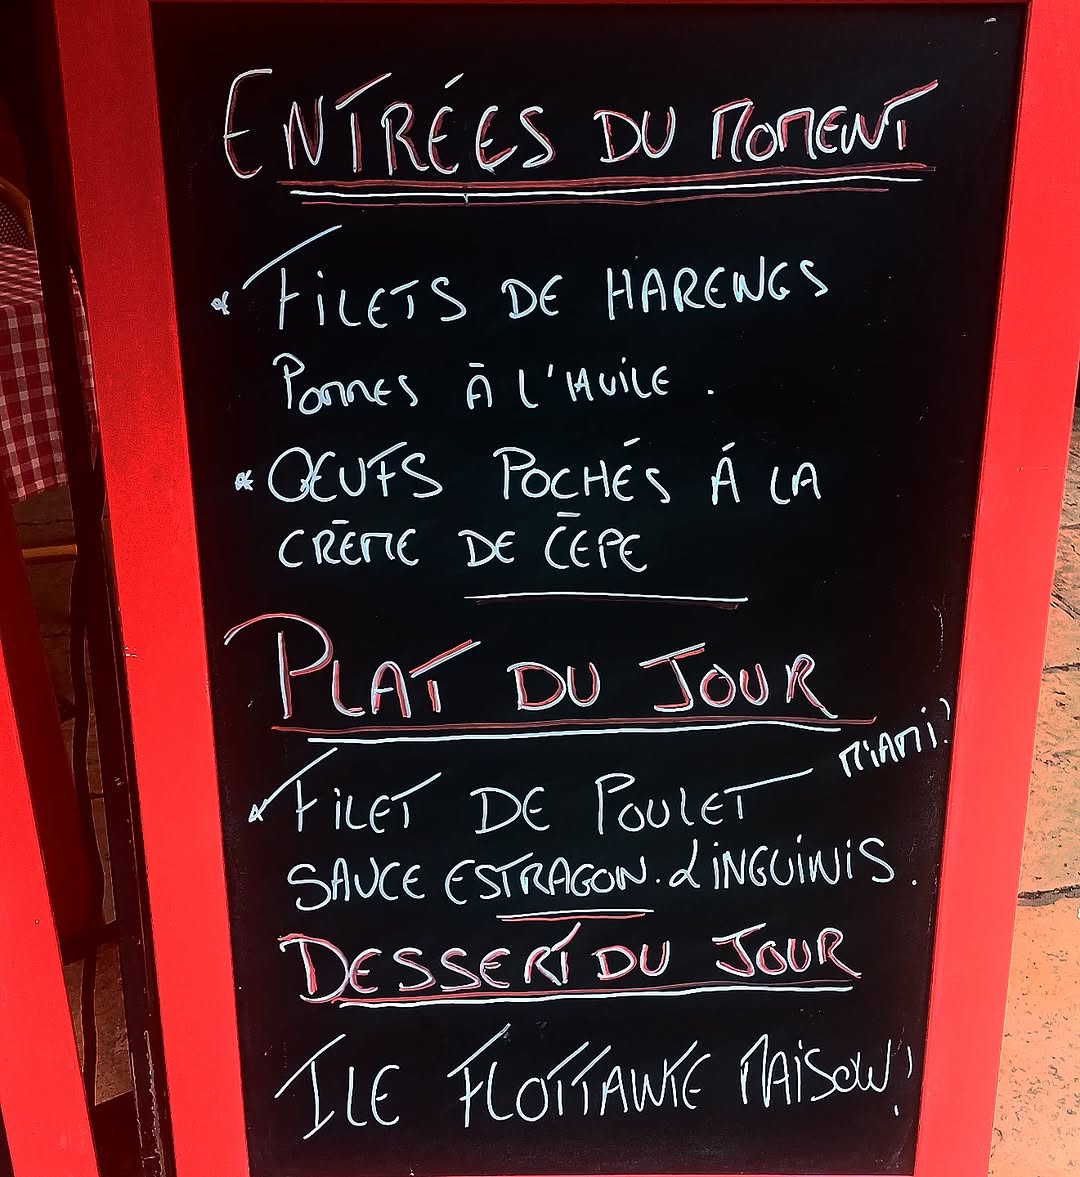 ENTRÉES DU MOMENT
* FILETS DE HARENGS
POMMES À L'HUILE.
* OEUFS POCHÉS À LA
CRÈME DE CÈPE
PLAT DU JOUR
MIAM!
* FILET DE POULET
SAUCE ESTRAGON. LINGUINIS.
DESSERT DU JOUR
ILE FLOTTANTE MAISON!